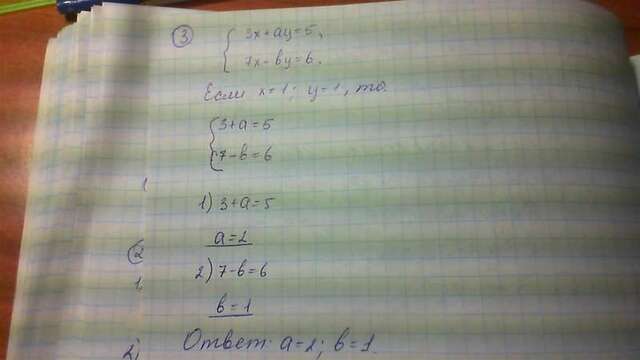 ③
{ 3x+ay=5,
7x-by=6.
Если x=1; y=1, то
{ 3+a=5
7-b=6
1) 3+a=5
a=2
2) 7-b=6
b=1
Ответ: a=2; b=1.